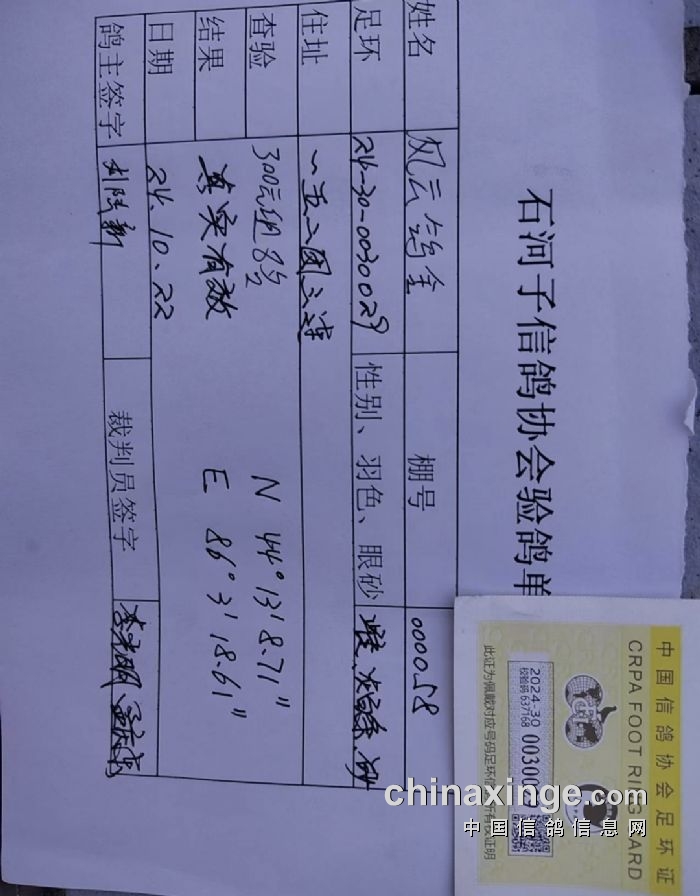 石河子信鸽协会验鸽单
姓名 风云鸽舍 棚号 000058
足环 24-30-0030029 性别、羽色、眼砂
住址 一五二团三连
查验 300公里 N 44°13'8.71"
结果 真实有效 E 86°3'18.61"
日期 24.10.22
鸽主签字 裁判员签字
中国信鸽协会足环证
CRPA FOOT RING CARD
2024-30
校验码 637168
此证为佩戴对应号码足环信
有权证明
chinaxinge.com
中国信鸽信息网